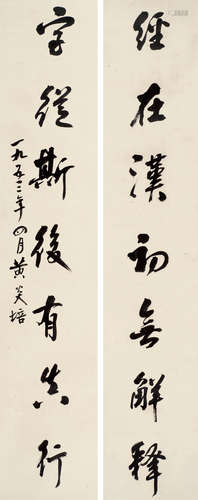 經在漢初無解釋
字從斯後有真行
一九五二年四月黃炎培